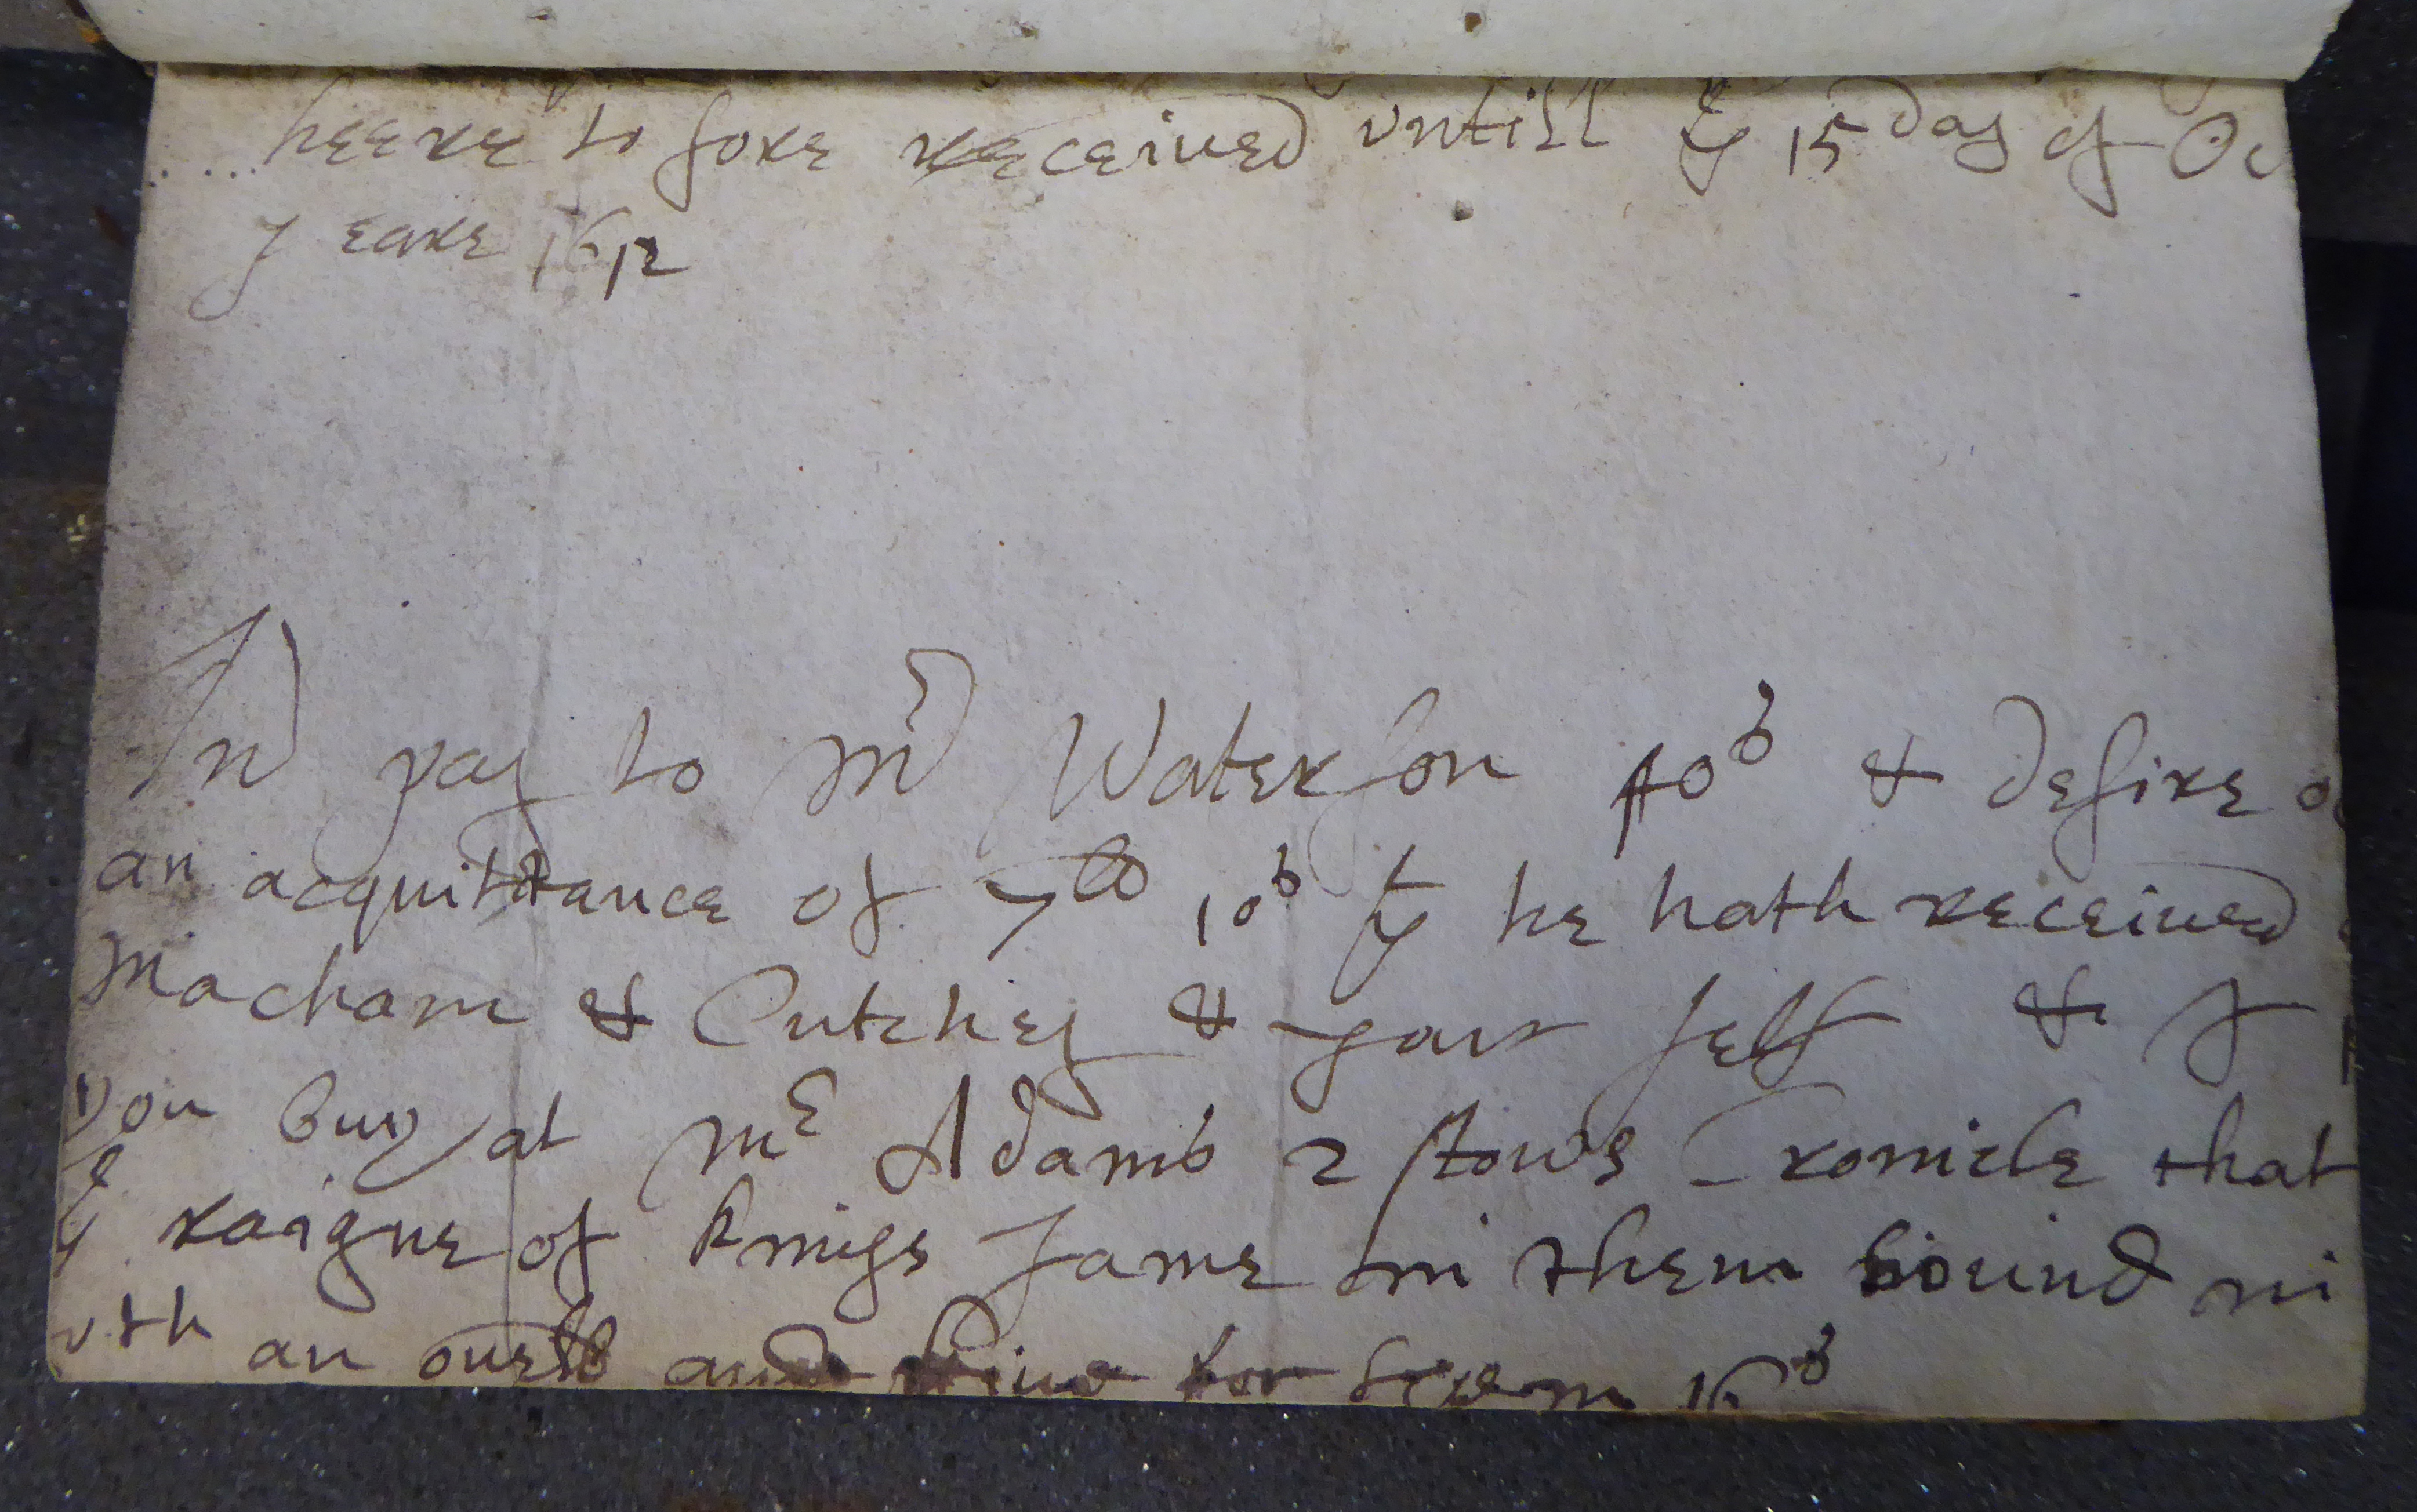 heere to fore received vntill ye 15 day of Oc
yeare 1612
In pay to Mr Waterson 40s & desire
an acquittance of 7lb 10s yt he hath received
Macham & Cutchey & your self & I
you buy at Mr Adams 2 stows Cronicle that
ye raigne of kings Jame in them bound in
wth an and give for them 16s